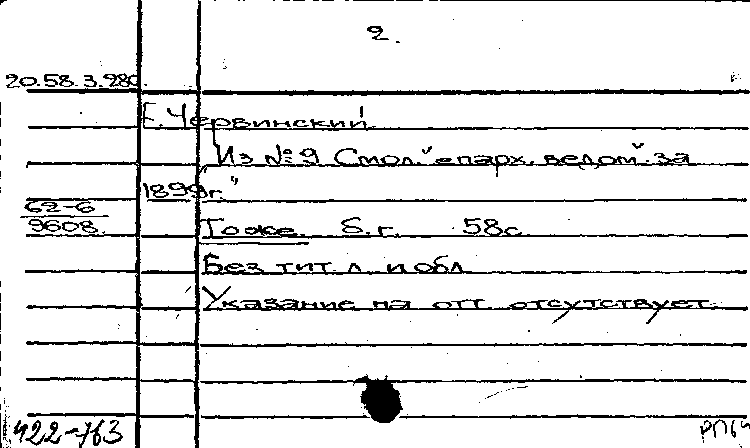 2.
20.58.3.280.
Е. Червинский
Из №9 Смол. "епарх. ведом". за
1899г."
62-6
9608.
То же. б.г. 58с
Без тит. л. и обл
Указание на отт. отсутствует.
422-763
РП64